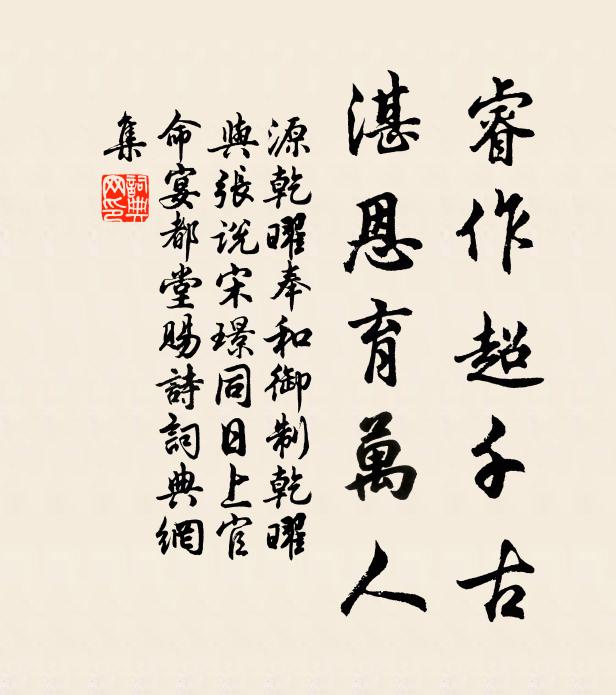 睿作超千古
湛恩育萬人
源乾曜奉和御制乾曜
與張说宋璟同日上官
命宴都堂賜詩詞典網
集
詞典網印